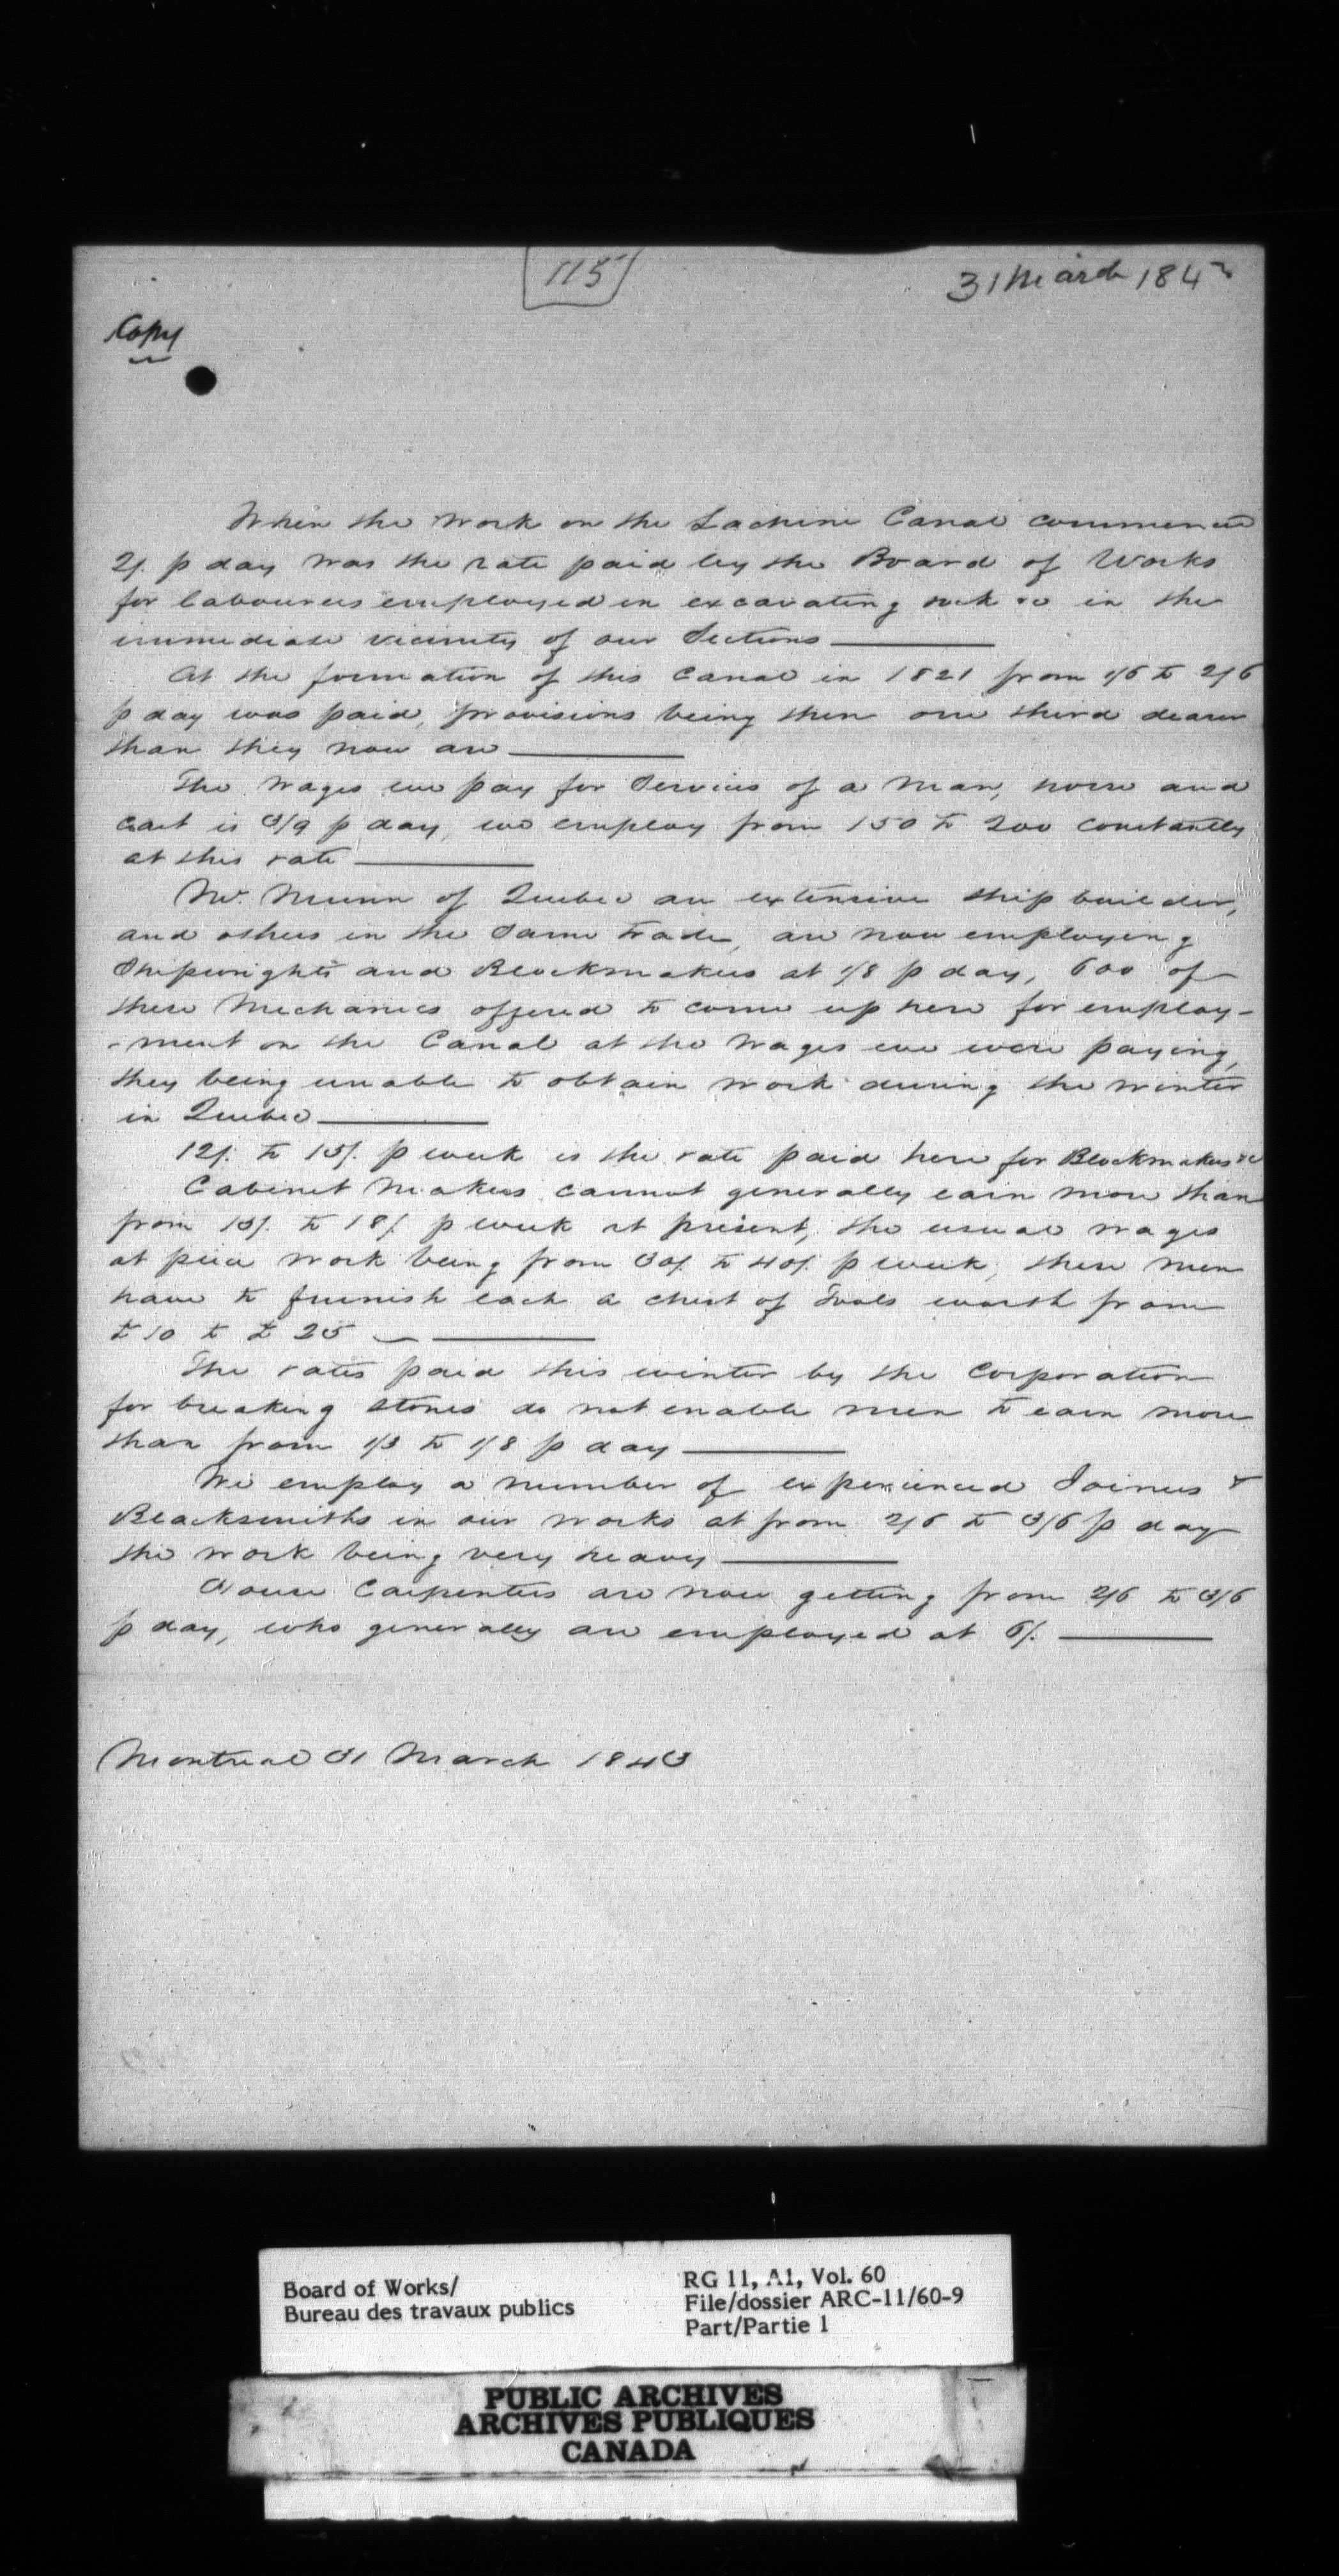 115
31 March 1843
Copy
When the work on the Lachine Canal commenced
2/. p day was the rate paid by the Board of Works
for labourers employed in excavating rock &c in the
immediate vicinity of our Sections
At the formation of this Canal in 1821 from 1/6 to 2/6
p day was paid, provisions being then one third dearer
than they now are
The wages we pay for Services of a man, horse and
cart is 3/9 p day, we employ from 150 to 200 constantly
at this rate
Mr. Munn of Quebec an extensive ship builder,
and others in the Same trade, are now employing
Shipwrights and Blockmakers at 1/8 p day, 600 of
these Mechanics offered to come up here for employ-
-ment on the Canal at the wages we were paying,
they being unable to obtain work during the winter
in Quebec
12/. to 15/. p week is the rate paid here for Blockmakers &c
Cabinet Makers cannot generally earn more than
from 15/. to 18/. p week at present, the usual wages
at piece work being from 30/. to 40/. p week, these men
have to furnish each a chest of Tools worth from
£10 to £25
The rates paid this winter by the Corporation
for breaking stones do not enable men to earn more
than from 1/3 to 1/8 p day
We employ a number of experienced Joiners &
Blacksmiths in our works at from 2/6 to 3/6 p day
the work being very heavy
House Carpenters are now getting from 2/6 to 3/6
p day, who generally are employed at 6/.
Montreal 31 March 1843
Board of Works/
Bureau des travaux publics
RG 11, A1, Vol. 60
File/dossier ARC-11/60-9
Part/Partie 1
PUBLIC ARCHIVES
ARCHIVES PUBLIQUES
CANADA